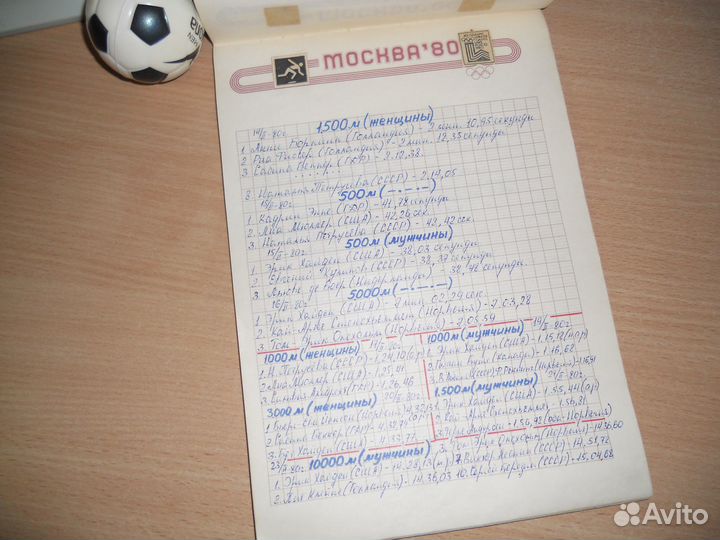 МОСКВА'80
14/II-80г. 1500м (женщины)
1. Анни Боркинк (Голландия) - 2 мин. 10,95 секунды
2. Риа Фиссер (Голландия) - 2 мин. 12,35 секунды
3. Сабина Беккер (ГДР) - 2.12,38
8. Наталья Петрусева (СССР) - 2.14,05
15/II-80г. 500м (—·—·—)
1. Карин Энке (ГДР) - 41,78 секунды
2. Лиа Мюллер (США) - 42,26 сек.
3. Наталья Петрусева (СССР) - 42,42 сек.
15/II-80г. 500м (мужчины)
1. Эрик Хайден (США) - 38,03 секунды
2. Евгений Куликов (СССР) - 38,37 секунды
3. Либе де Боер (Нидерланды) - 38,48 секунды.
16/II-80г. 5000м (—·—·—)
1. Эрик Хайден (США) - 7 мин. 02,29 сек.
2. Кай-Арне (Норвегия) - 7.03,28
3. Том-Эрик Оксхольм (Норвегия) - 7.05,59
1000м (женщины)
1. Н. Петрусева (СССР) - 1.24,10
2. Лиа Мюллер (США) - 1.25,41
3. (ГДР) - 1.26,46
3000м (женщины) 20/II-80г.
1. (Норвегия) 4.32,13
2. Сабина Беккер (ГДР) 4.32,79
3. Бет Хайден (США) - 4.33,77
1000м (мужчины) 19/II-80г.
1. Эрик Хайден (США) - 1.15,18
2. (Канада) - 1.16,68
3. (Норвегия) - 1.16,91
1.500м (мужчины) 21/II-80г.
1. Эрик Хайден (США) - 1.55,44
2. Кай-Арне - 1.56,81
3. - 1.56,92 (Норвегия)
23/II-80г. 10000м (мужчины)
1. Эрик Хайден (США) - 14.28,13
2. Пит Клейне (Голландия) - 14.36,03
3. Том-Эрик Оксхольм (Норвегия) - 14.36,60
7. (СССР) - 14.51,72
10. Сергей (СССР) - 15.04,68
Avito